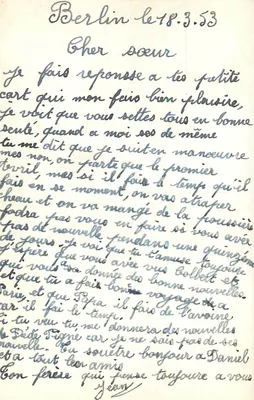 Berlin le 18.3.53
Cher sœur
Je fais reponsse a tes petite
cart qui mon fais bien plaisire,
je voit que vous settes tous en bonne
senté, quand a moi ses de même
tu me dit que je suit en manœuvre
mes non, on parte que le premier
Avril, mes si il fais le temp qu'il
fais en se moment, on vas atraper
heau et on va mangé de la poussière
fodra pas vous en faire si vous avér
pas de nouvelle pendans une quinzéne
de jours. Je voi que tu t'amuse toujoure
espère que vous avée vus Colbert et
qui vous a donnée des bonne nouvelles
et que tu a fais bonne voyage a
Paris, et que Papa il fais de l'avoine
car il fai le temp.
si tu veu tu me donnera des nouvelles
Dédé car je ne sais pas de ses
nouvelle. Tu souétre bonjour a Daniel
et a tout les amis
Ton frère qui pense toujoure a vous
Jean